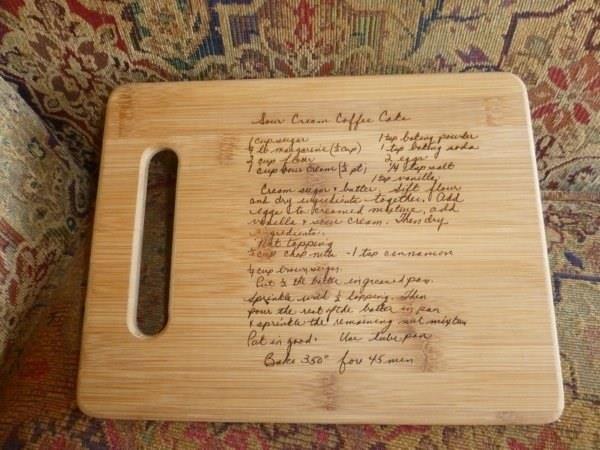 Sour Cream Coffee Cake
1 cup sugar 1 tsp baking powder
¼ lb margarine (½ cup) 1 tsp baking soda
2 cup flour 2 eggs
1 cup sour cream (½ pt) ¼ tsp salt
1 tsp vanilla
Cream sugar + butter, sift flour
and dry ingredients together. Add
eggs to creamed mixture, add
vanilla + sour cream. Then dry
ingredients.
Nut topping
cup chop nuts - 1 tsp cinnamon
¼ cup brown sugar.
Put ½ the batter in greased pan.
Sprinkle with ½ topping. Then
pour the rest of the batter in pan
& sprinkle the remaining nut mixture
Pat in good. Use tube pan
Bake 350° for 45 min